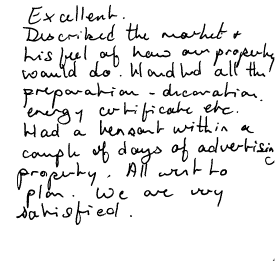 Excellent.
Described the market &
his feel of how our property
would do. Handled all the
preparation - decoration.
energy certificate etc.
Had a tenant within a
couple of days of advertising
property. All went to
plan. We are very
satisfied.